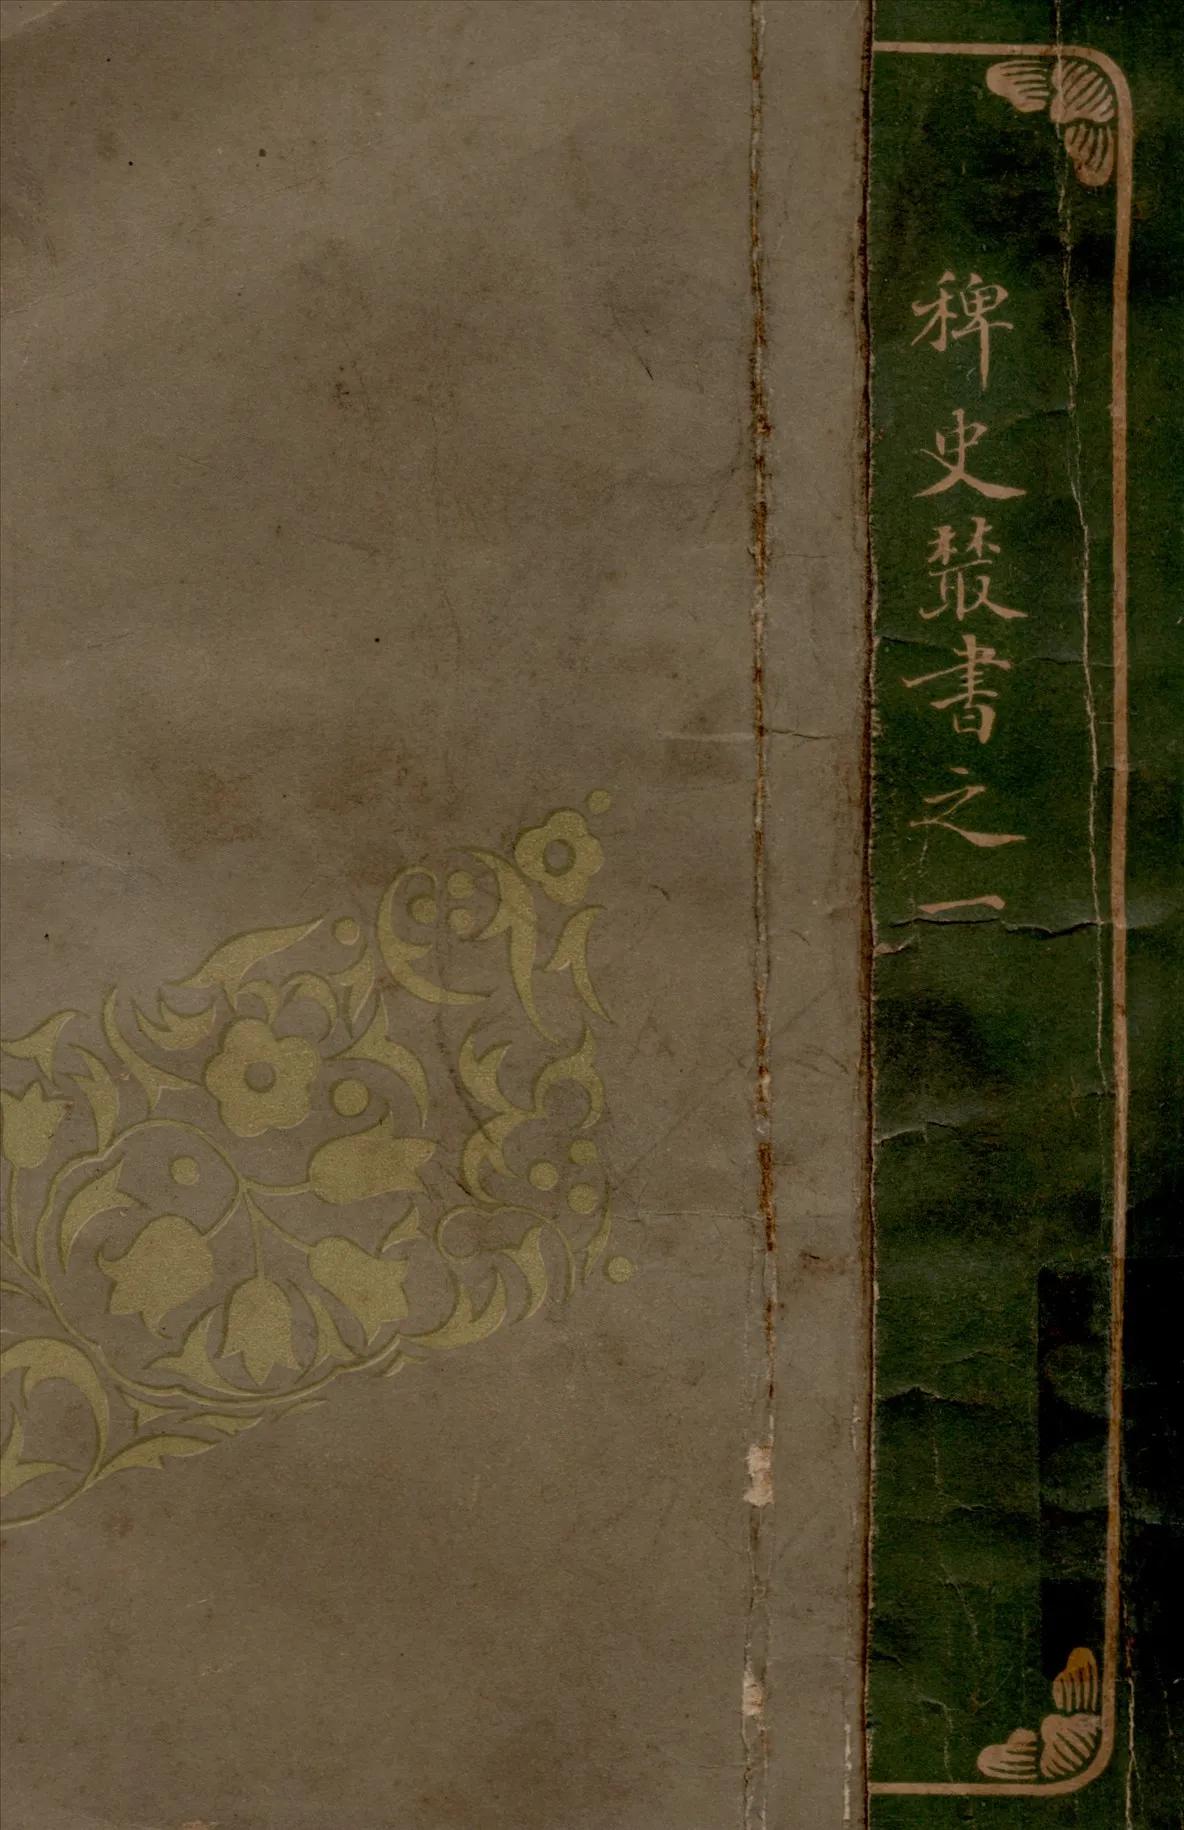 稗史叢書之一